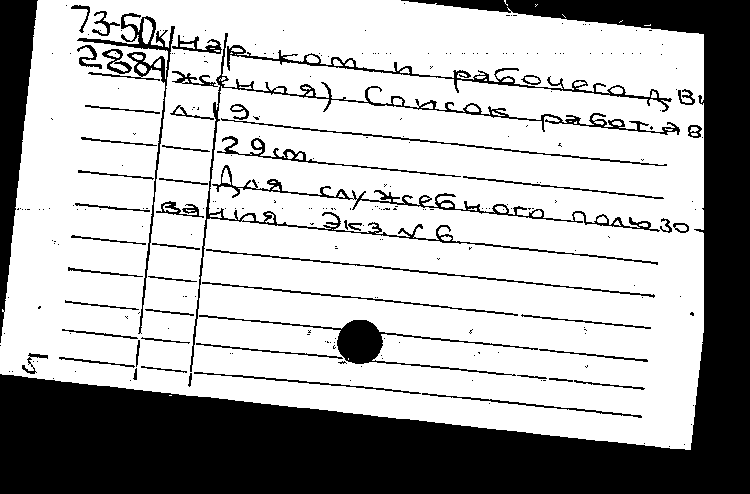 73-50к нар. ком. и рабочего дви
2884 жения). Список работ. ав
л. 19.
29 cm.
Для служебного пользо-
вания. Экз. № 6
5